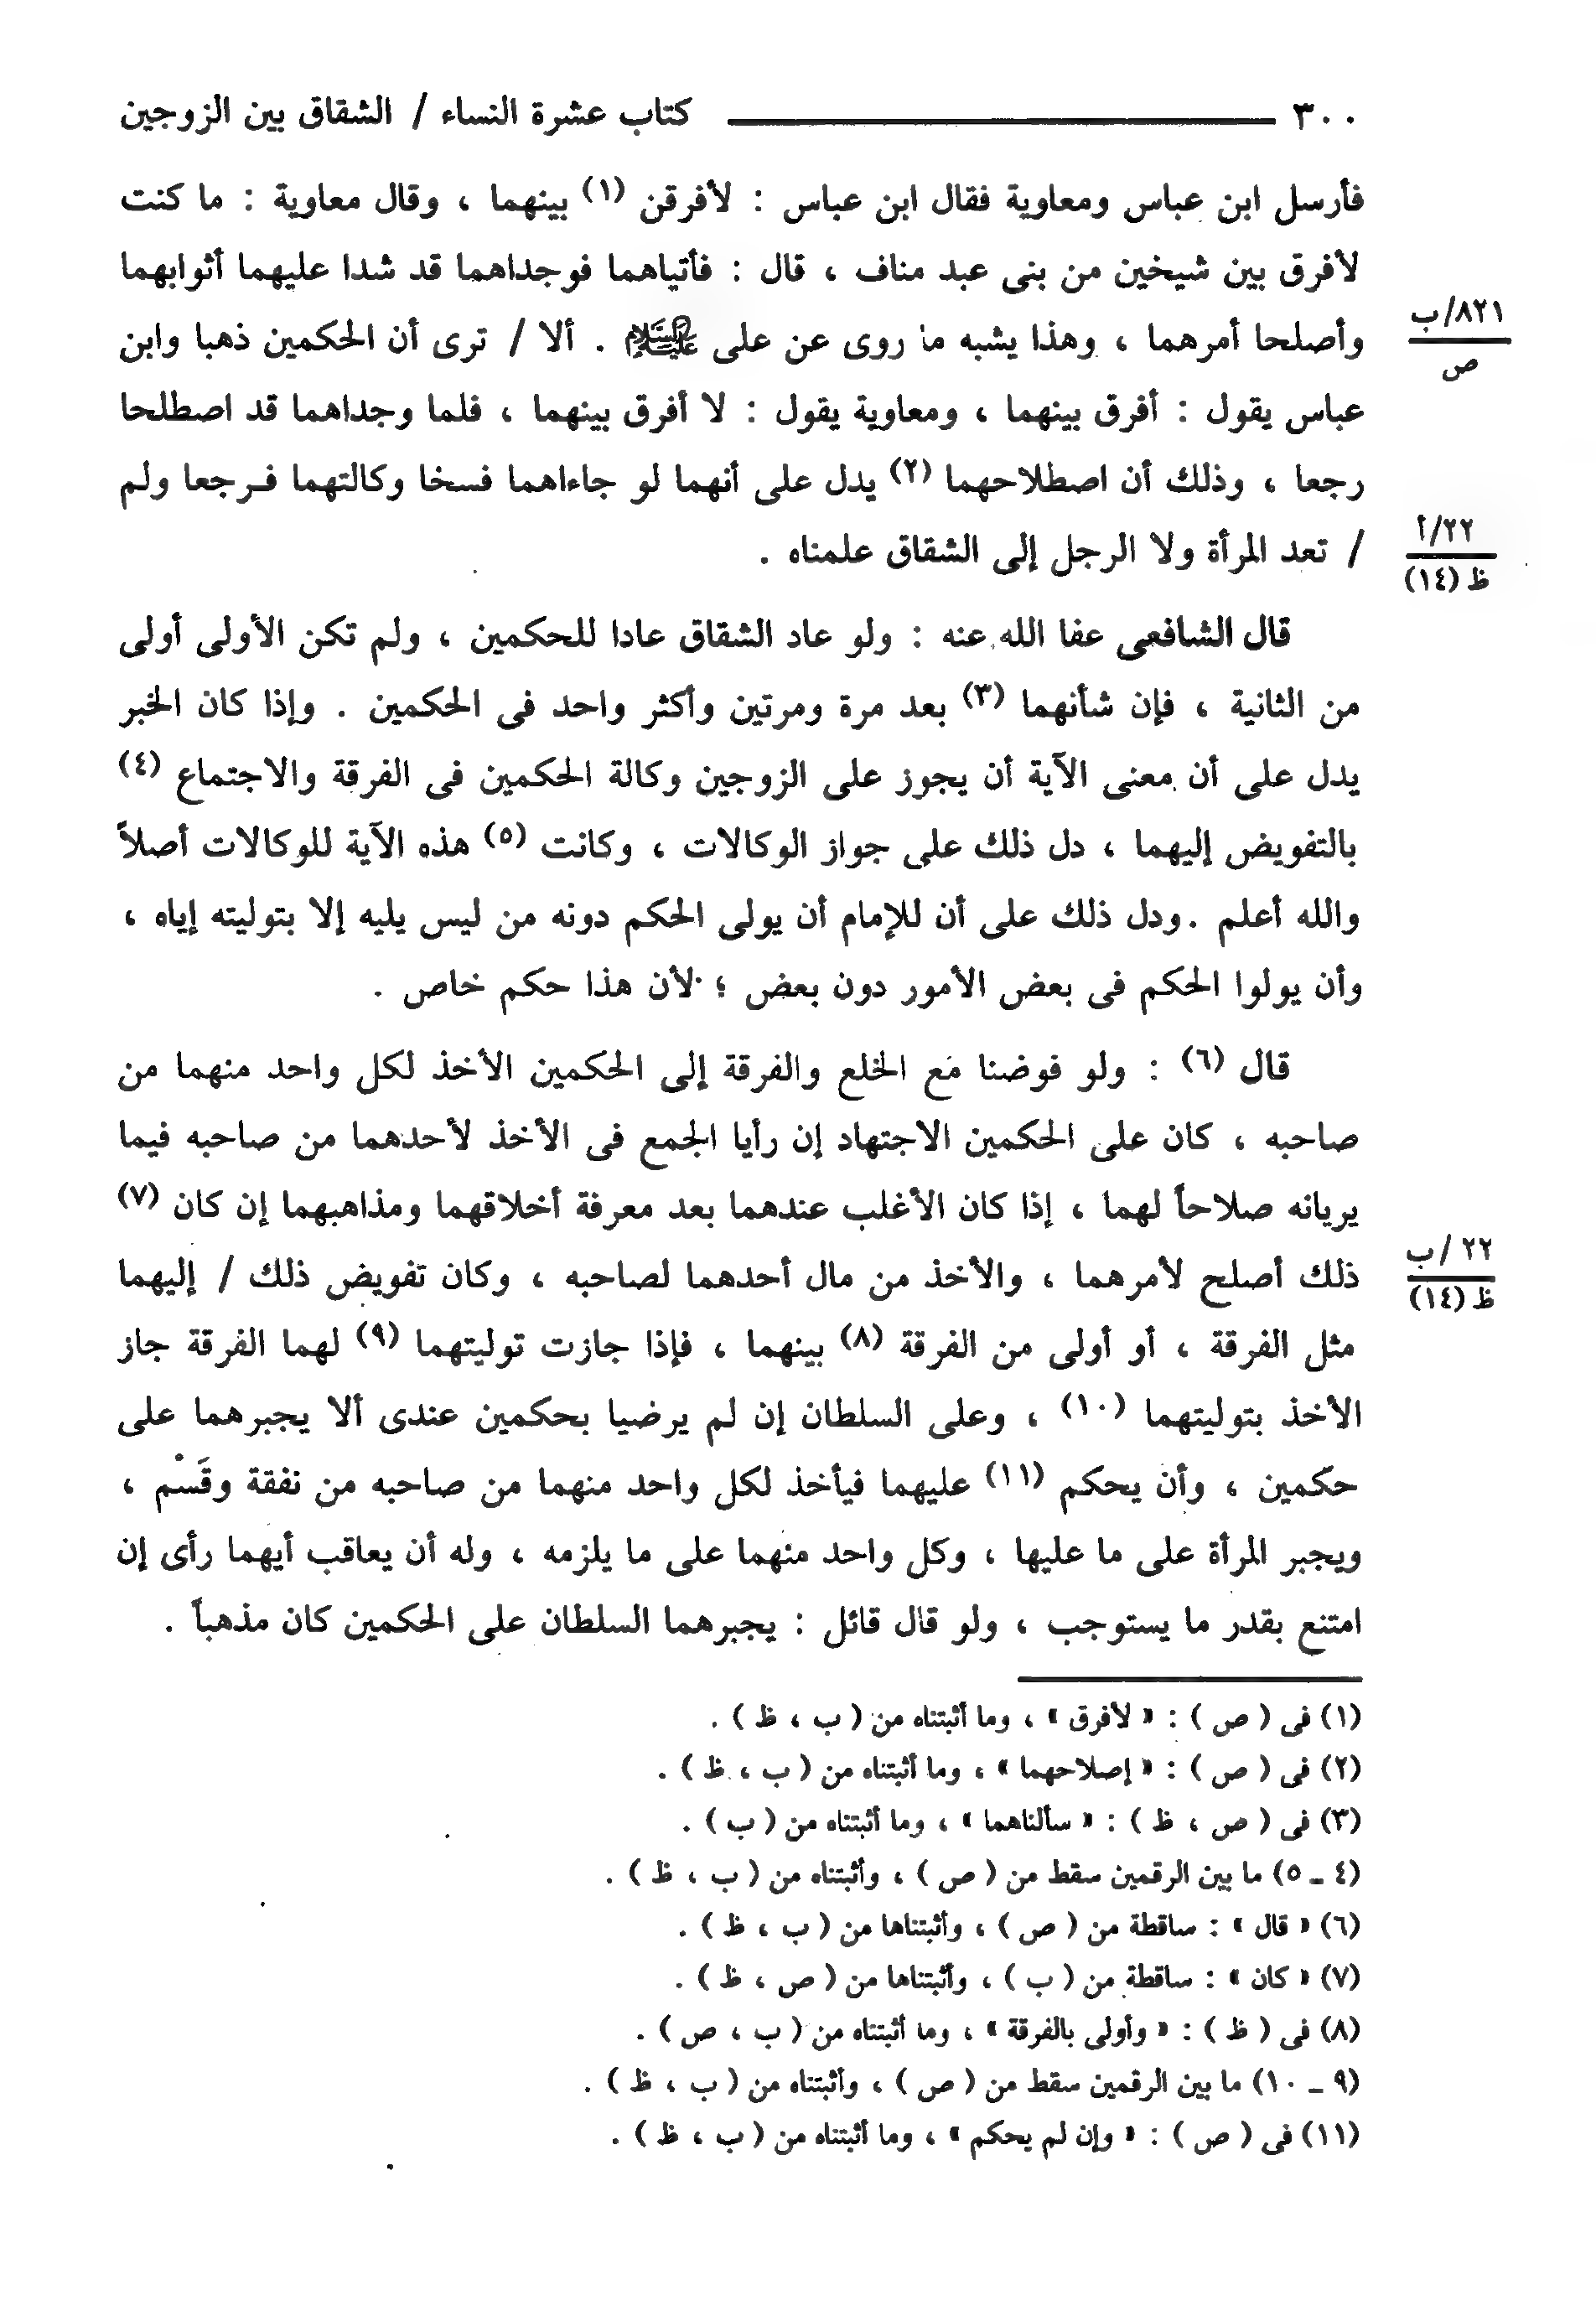 ٣٠٠ كتاب عشرة النساء / الشقاق بين الزوجين
فأرسل ابن عباس ومعاوية فقال ابن عباس : لأفرقن (١) بينهما ، وقال معاوية : ما كنت
لأفرق بين شيخين من بنى عبد مناف ، قال : فأتياهما فوجداهما قد شدا عليهما أثوابهما
وأصلحا أمرهما ، وهذا يشبه ما روى عن على عليه السلام . ألا / ترى أن الحكمين ذهبا وابن
٨٢١/ب
ص
عباس يقول : أفرق بينهما ، ومعاوية يقول : لا أفرق بينهما ، فلما وجداهما قد اصطلحا
رجعا ، وذلك أن اصطلاحهما (٢) يدل على أنهما لو جاءاهما فسخا وكالتهما فرجعا ولم
/ تعد المرأة ولا الرجل إلى الشقاق علمناه .
٢٢/أ
ظ (١٤)
قال الشافعى عفا الله عنه : ولو عاد الشقاق عادا للحكمين ، ولم تكن الأولى أولى
من الثانية ، فإن شأنهما (٣) بعد مرة ومرتين وأكثر واحد فى الحكمين . وإذا كان الخبر
يدل على أن معنى الآية أن يجوز على الزوجين وكالة الحكمين فى الفرقة والاجتماع (٤)
بالتفويض إليهما ، دل ذلك على جواز الوكالات ، وكانت (٥) هذه الآية للوكالات أصلاً
والله أعلم . ودل ذلك على أن للإمام أن يولى الحكم دونه من ليس يليه إلا بتوليته إياه ،
وأن يولوا الحكم فى بعض الأمور دون بعض ؛ لأن هذا حكم خاص .
قال (٦) : ولو فوضنا مع الخلع والفرقة إلى الحكمين الأخذ لكل واحد منهما من
صاحبه ، كان على الحكمين الاجتهاد إن رأيا الجمع فى الأخذ لأحدهما من صاحبه فيما
يريانه صلاحاً لهما ، إذا كان الأغلب عندهما بعد معرفة أخلاقهما ومذاهبهما إن كان (٧)
ذلك أصلح لأمرهما ، والأخذ من مال أحدهما لصاحبه ، وكان تفويض ذلك / إليهما
٢٢ /ب
ظ (١٤)
مثل الفرقة ، أو أولى من الفرقة (٨) بينهما ، فإذا جازت توليتهما (٩) لهما الفرقة جاز
الأخذ بتوليتهما (١٠) ، وعلى السلطان إن لم يرضيا بحكمين عندى ألا يجبرهما على
حكمين ، وأن يحكم (١١) عليهما فيأخذ لكل واحد منهما من صاحبه من نفقة وقَسْم ،
ويجبر المرأة على ما عليها ، وكل واحد منهما على ما يلزمه ، وله أن يعاقب أيهما رأى إن
امتنع بقدر ما يستوجب ، ولو قال قائل : يجبرهما السلطان على الحكمين كان مذهباً .
(١) فى ( ص ) : « لأفرق » ، وما أثبتناه من ( ب ، ظ ) .
(٢) فى ( ص ) : « إصلاحهما » ، وما أثبتناه من ( ب ، ظ ) .
(٣) فى ( ص ، ظ ) : « سألناهما » ، وما أثبتناه من ( ب ) .
(٤ ـ ٥) ما بين الرقمين سقط من ( ص ) ، وأثبتناه من ( ب ، ظ ) .
(٦) « قال » : ساقطة من ( ص ) ، وأثبتناها من ( ب ، ظ ) .
(٧) « كان » : ساقطة من ( ب ) ، وأثبتناها من ( ص ، ظ ) .
(٨) فى ( ظ ) : « وأولى بالفرقة » ، وما أثبتناه من ( ب ، ص ) .
(٩ ـ ١٠) ما بين الرقمين سقط من ( ص ) ، وأثبتناه من ( ب ، ظ ) .
(١١) فى ( ص ) : « وإن لم يحكم » ، وما أثبتناه من ( ب ، ظ ) .